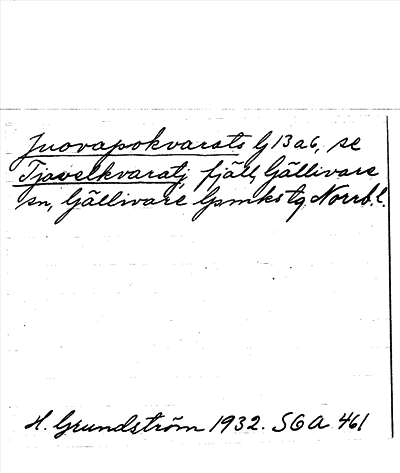 Juovapokvarats G 13 a 6, se
Tjavelkvaratj, fjäll, Gällivare
sn, Gällivare lpmkstg Norrb. l.
H. Grundström 1932. SOA 461